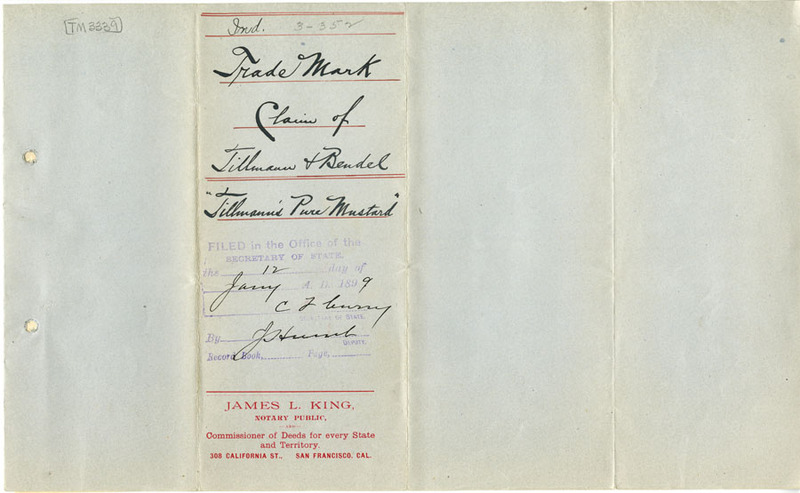 [TM3339]
Ind. 3-352
Trade Mark
Claim of
Tillmann & Bendel
"Tillmann's Pure Mustard"
FILED in the Office of the
SECRETARY OF STATE,
the 12 day of
Jany A. D. 1899
C F Curry
Secretary of State.
By
Deputy.
Record Book, Page,
JAMES L. KING,
NOTARY PUBLIC,
—AND—
Commissioner of Deeds for every State
and Territory.
308 CALIFORNIA ST., SAN FRANCISCO, CAL.